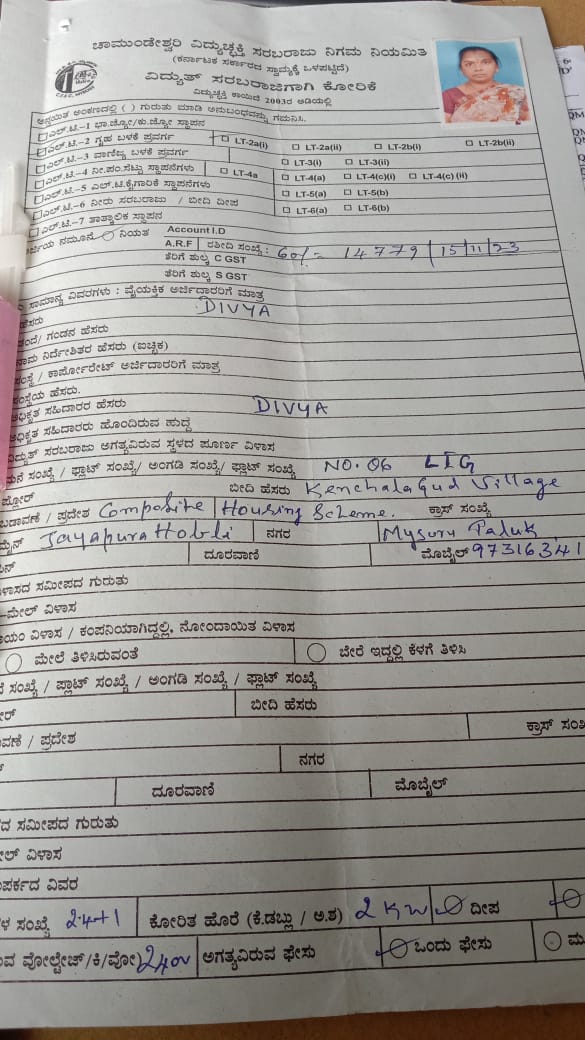 ಚಾಮುಂಡೇಶ್ವರಿ ವಿದ್ಯುಚ್ಛಕ್ತಿ ಸರಬರಾಜು ನಿಗಮ ನಿಯಮಿತ
(ಕರ್ನಾಟಕ ಸರ್ಕಾರದ ಸ್ವಾಮ್ಯಕ್ಕೆ ಒಳಪಟ್ಟಿದೆ)
ವಿದ್ಯುತ್ ಸರಬರಾಜಿಗಾಗಿ ಕೋರಿಕೆ
ವಿದ್ಯುಚ್ಛಕ್ತಿ ಕಾಯಿದೆ 2003ರ ಅಡಿಯಲ್ಲಿ
ಅನ್ವಯಿತ ಅಂಕಣದಲ್ಲಿ ( ) ಗುರುತು ಮಾಡಿ ಅನುಬಂಧವನ್ನು ಗಮನಿಸಿ.
ಎಲ್.ಟಿ.-1 ಭಾ.ಜ್ಯೋ/ಕು.ಜ್ಯೋ ಸ್ಥಾಪನ
ಎಲ್.ಟಿ.-2 ಗೃಹ ಬಳಕೆ ಪ್ರವರ್ಗ LT-2a(i) LT-2a(ii) LT-2b(i) LT-2b(ii)
ಎಲ್.ಟಿ.-3 ವಾಣಿಜ್ಯ ಬಳಕೆ ಪ್ರವರ್ಗ LT-3(i) LT-3(ii)
ಎಲ್.ಟಿ.-4 ನೀ.ಪಂ.ಸೆಟ್ಟು ಸ್ಥಾಪನೆಗಳು LT-4a LT-4(c)(i) LT-4(c) (ii)
ಎಲ್.ಟಿ.-5 ಎಲ್.ಟಿ.ಕೈಗಾರಿಕೆ ಸ್ಥಾಪನೆಗಳು LT-5(a) LT-5(b)
ಎಲ್.ಟಿ.-6 ನೀರು ಸರಬರಾಜು / ಬೀದಿ ದೀಪ LT-6(a) LT-6(b)
ಎಲ್.ಟಿ.-7 ತಾತ್ಕಾಲಿಕ ಸ್ಥಾಪನ
ನಮೂನೆ ನಿಯತ Account I.D
A.R.F ರಶೀದಿ ಸಂಖ್ಯೆ : 60/- 14779 / 15/11/23
ತೆರಿಗೆ ಶುಲ್ಕ C GST
ತೆರಿಗೆ ಶುಲ್ಕ S GST
ಸಾಮಾನ್ಯ ವಿವರಗಳು : ವೈಯಕ್ತಿಕ ಅರ್ಜಿದಾರರಿಗೆ ಮಾತ್ರ
ಹೆಸರು DIVYA
ಗಂಡನ ಹೆಸರು
ನಾಮ ನಿರ್ದೇಶಿತರ ಹೆಸರು (ಐಚ್ಛಿಕ)
ಸಂಸ್ಥೆ / ಕಾರ್ಪೋರೇಟ್ ಅರ್ಜಿದಾರರಿಗೆ ಮಾತ್ರ
ಸಂಸ್ಥೆಯ ಹೆಸರು.
ಅಧಿಕೃತ ಸಹಿದಾರರ ಹೆಸರು DIVYA
ಅಧಿಕೃತ ಸಹಿದಾರರು ಹೊಂದಿರುವ ಹುದ್ದೆ
ವಿದ್ಯುತ್ ಸರಬರಾಜು ಅಗತ್ಯವಿರುವ ಸ್ಥಳದ ಪೂರ್ಣ ವಿಳಾಸ
ಮನೆ ಸಂಖ್ಯೆ / ಫ್ಲಾಟ್ ಸಂಖ್ಯೆ/ ಅಂಗಡಿ ಸಂಖ್ಯೆ/ ಫ್ಲಾಟ್ ಸಂಖ್ಯೆ NO. 06 LIG
ಫ್ಲೋರ್ ಬೀದಿ ಹೆಸರು Kenchalagud Village
ಬಡಾವಣೆ / ಪ್ರದೇಶ Composite Housing Scheme. ಕ್ರಾಸ್ ಸಂಖ್ಯೆ
ಮೈನ್ Jayapura Hobli ನಗರ Mysuru Taluk
ದೂರವಾಣಿ ಮೊಬೈಲ್ 97316341
ವಿಳಾಸದ ಸಮೀಪದ ಗುರುತು
ಮೇಲ್ ವಿಳಾಸ
ವಿಳಾಸ / ಕಂಪನಿಯಾಗಿದ್ದಲ್ಲಿ, ನೋಂದಾಯಿತ ವಿಳಾಸ
ಮೇಲೆ ತಿಳಿಸಿರುವಂತೆ ಬೇರೆ ಇದ್ದಲ್ಲಿ ಕೆಳಗೆ ತಿಳಿಸಿ
ಸಂಖ್ಯೆ / ಪ್ಲಾಟ್ ಸಂಖ್ಯೆ / ಅಂಗಡಿ ಸಂಖ್ಯೆ / ಫ್ಲಾಟ್ ಸಂಖ್ಯೆ
ಬೀದಿ ಹೆಸರು
/ ಪ್ರದೇಶ ಕ್ರಾಸ್ ಸಂಖ
ನಗರ
ದೂರವಾಣಿ ಮೊಬೈಲ್
ದ ಸಮೀಪದ ಗುರುತು
ವಿಳಾಸ
ವಿವರ
ಸಂಖ್ಯೆ 2.4+1 ಕೋರಿತ ಹೊರೆ (ಕೆ.ಡಬ್ಲು / ಅ.ಶ) 2 KW ದೀಪ
ವೋಲ್ಟೇಜ್/ಕಿ/ವೋ) 240V ಅಗತ್ಯವಿರುವ ಫೇಸು ಒಂದು ಫೇಸು